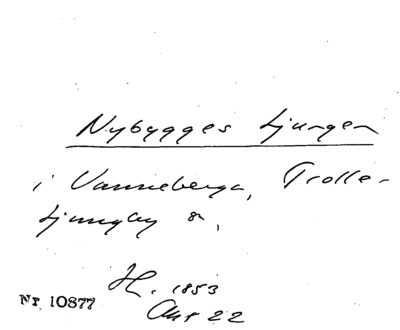 Nybygges Ljungen
i Vanneberga, Trolle-
Ljungby sn,
H. 1853
Akt 22
Nr 10877